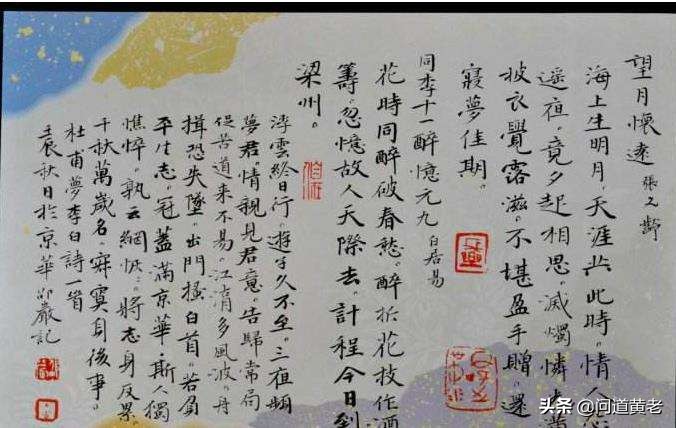 望月懷遠 張九齡
海上生明月。天涯共此時。情人怨
遥夜。竟夕起相思。滅燭憐光滿
披衣覺露滋。不堪盈手贈。還
寢夢佳期。
同李十一醉憶元九 白居易
花時同醉破春愁。醉折花枝作酒
籌。忽憶故人天際去。計程今日到
梁州。
浮雲終日行。遊子久不至。三夜頻
夢君。情親見君意。告歸常局
促。苦道来不易。江湖多風波。舟
楫恐失墜。出門搔白首。若負
平生志。冠蓋滿京華。斯人獨
憔悴。孰云網恢。將老身反累。
千秋萬歲名。寂寞身後事。
杜甫夢李白詩一首
壬辰秋日於京華 記
头条 @问道黄老